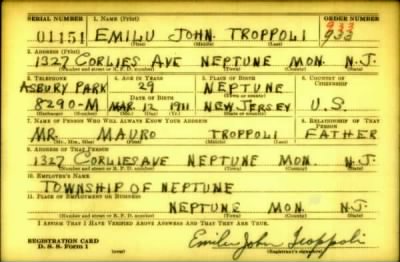 SERIAL NUMBER 1. NAME (Print) ORDER NUMBER
01151 EMILU JOHN TROPPOLI 933
933
(First) (Middle) (Last)
2. ADDRESS (Print)
1327 CORLIES AVE NEPTUNE MON. N.J.
(Number and street or R. F. D. number) (Town) (County) (State)
3. TELEPHONE 4. AGE IN YEARS 5. PLACE OF BIRTH 6. COUNTRY OF CITIZENSHIP
ASBURY PARK 29 NEPTUNE
DATE OF BIRTH (Town or county)
8290-M MAR. 12 1911 NEW JERSEY U.S.
(Exchange) (Number) (Mo.) (Day) (Yr.) (State or country)
7. NAME OF PERSON WHO WILL ALWAYS KNOW YOUR ADDRESS 8. RELATIONSHIP OF THAT PERSON
MR. MAURO TROPPOLI FATHER
(Mr., Mrs., Miss) (First) (Middle) (Last)
9. ADDRESS OF THAT PERSON
1327 CORLIES AVE NEPTUNE MON. N.J.
(Number and street or R. F. D. number) (Town) (County) (State)
10. EMPLOYER'S NAME
TOWNSHIP OF NEPTUNE
11. PLACE OF EMPLOYMENT OR BUSINESS
NEPTUNE MON. N.J.
(Number and street or R. F. D. number) (Town) (County) (State)
I AFFIRM THAT I HAVE VERIFIED ABOVE ANSWERS AND THAT THEY ARE TRUE.
REGISTRATION CARD
D. S. S. Form 1 (over) Emilu John Troppoli
(Registrant's signature)